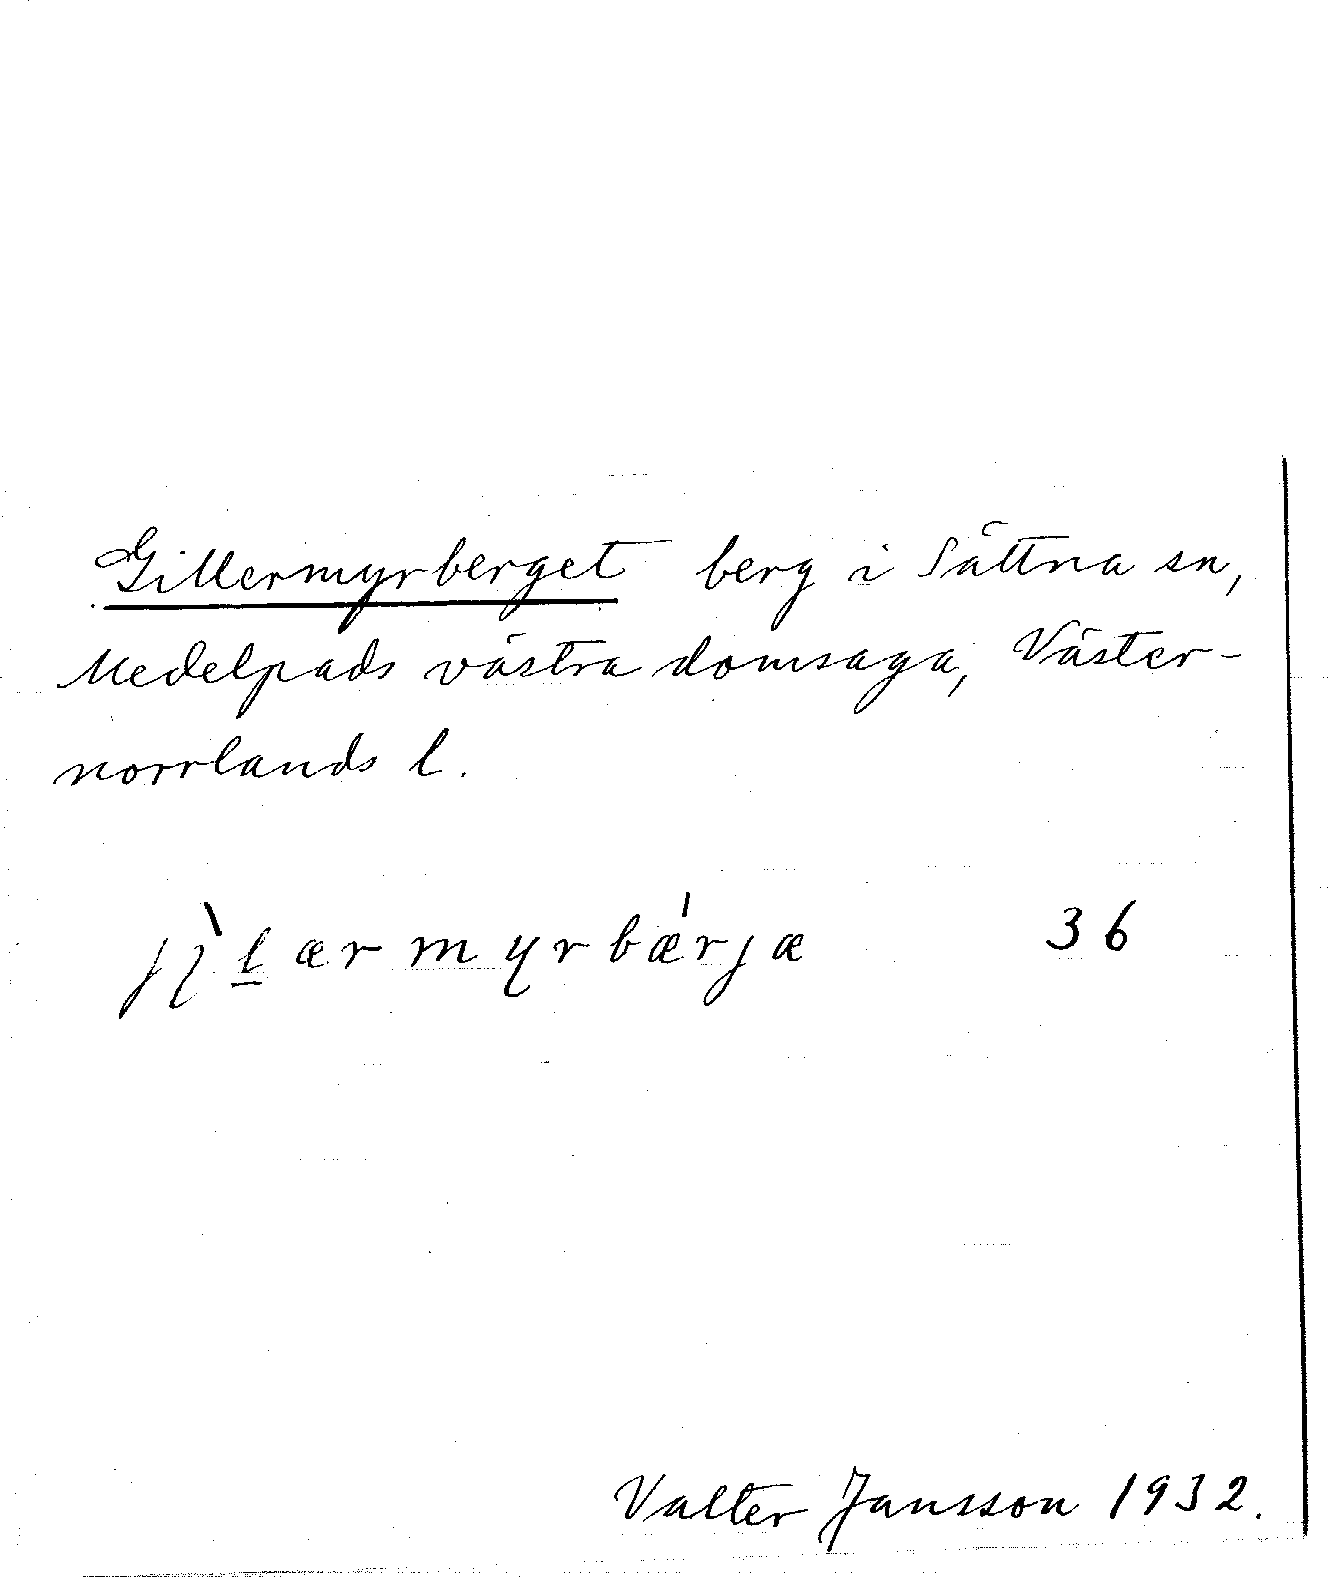 Gillermyrberget berg i Sättna sn,
Medelpads västra domsaga, Väster-
norrlands l.
jìl̲ærmyrbǽrjæ 36
Valter Jansson 1932.